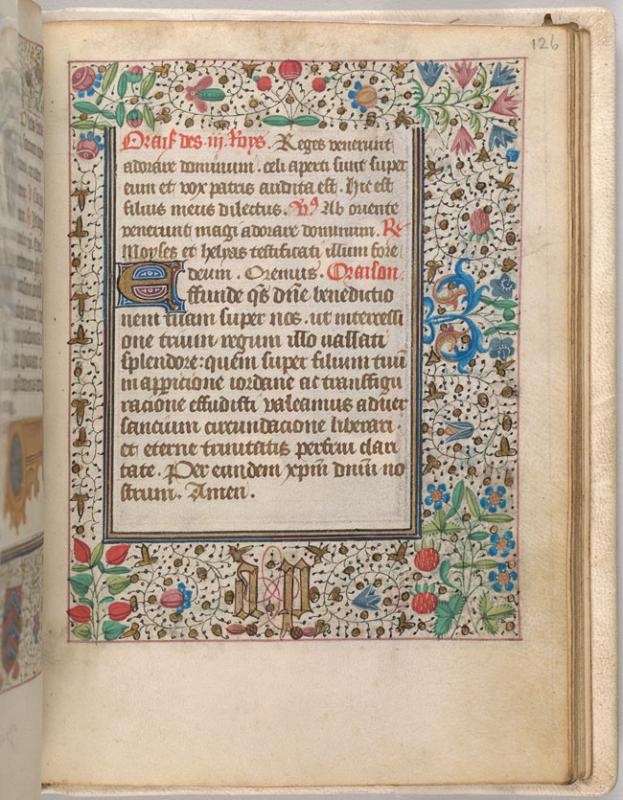 126
Orais des .iij. Roys. Reges venerunt
adorare dominum. celi aperti sunt super
eum et vox patris audita est. hic est
filius meus dilectus. Vs Ab oriente
venerunt magi adorare dominum. R
Moyses et helyas testificati illum fore
deum. Oremus. Oraison.
Effunde qs dñe benedictio
nem tuam super nos. ut intercessi
one trium regum illo vallati
splendore: quem super filium tuũ
in apparicione iordane ac transfigu
racione effudisti valeamus adver
sancium circundacione liberari.
et eterne trinitatis perfrui clari
tate. Per eundem xpm̃ dnm̃ no
strum. Amen.
a p